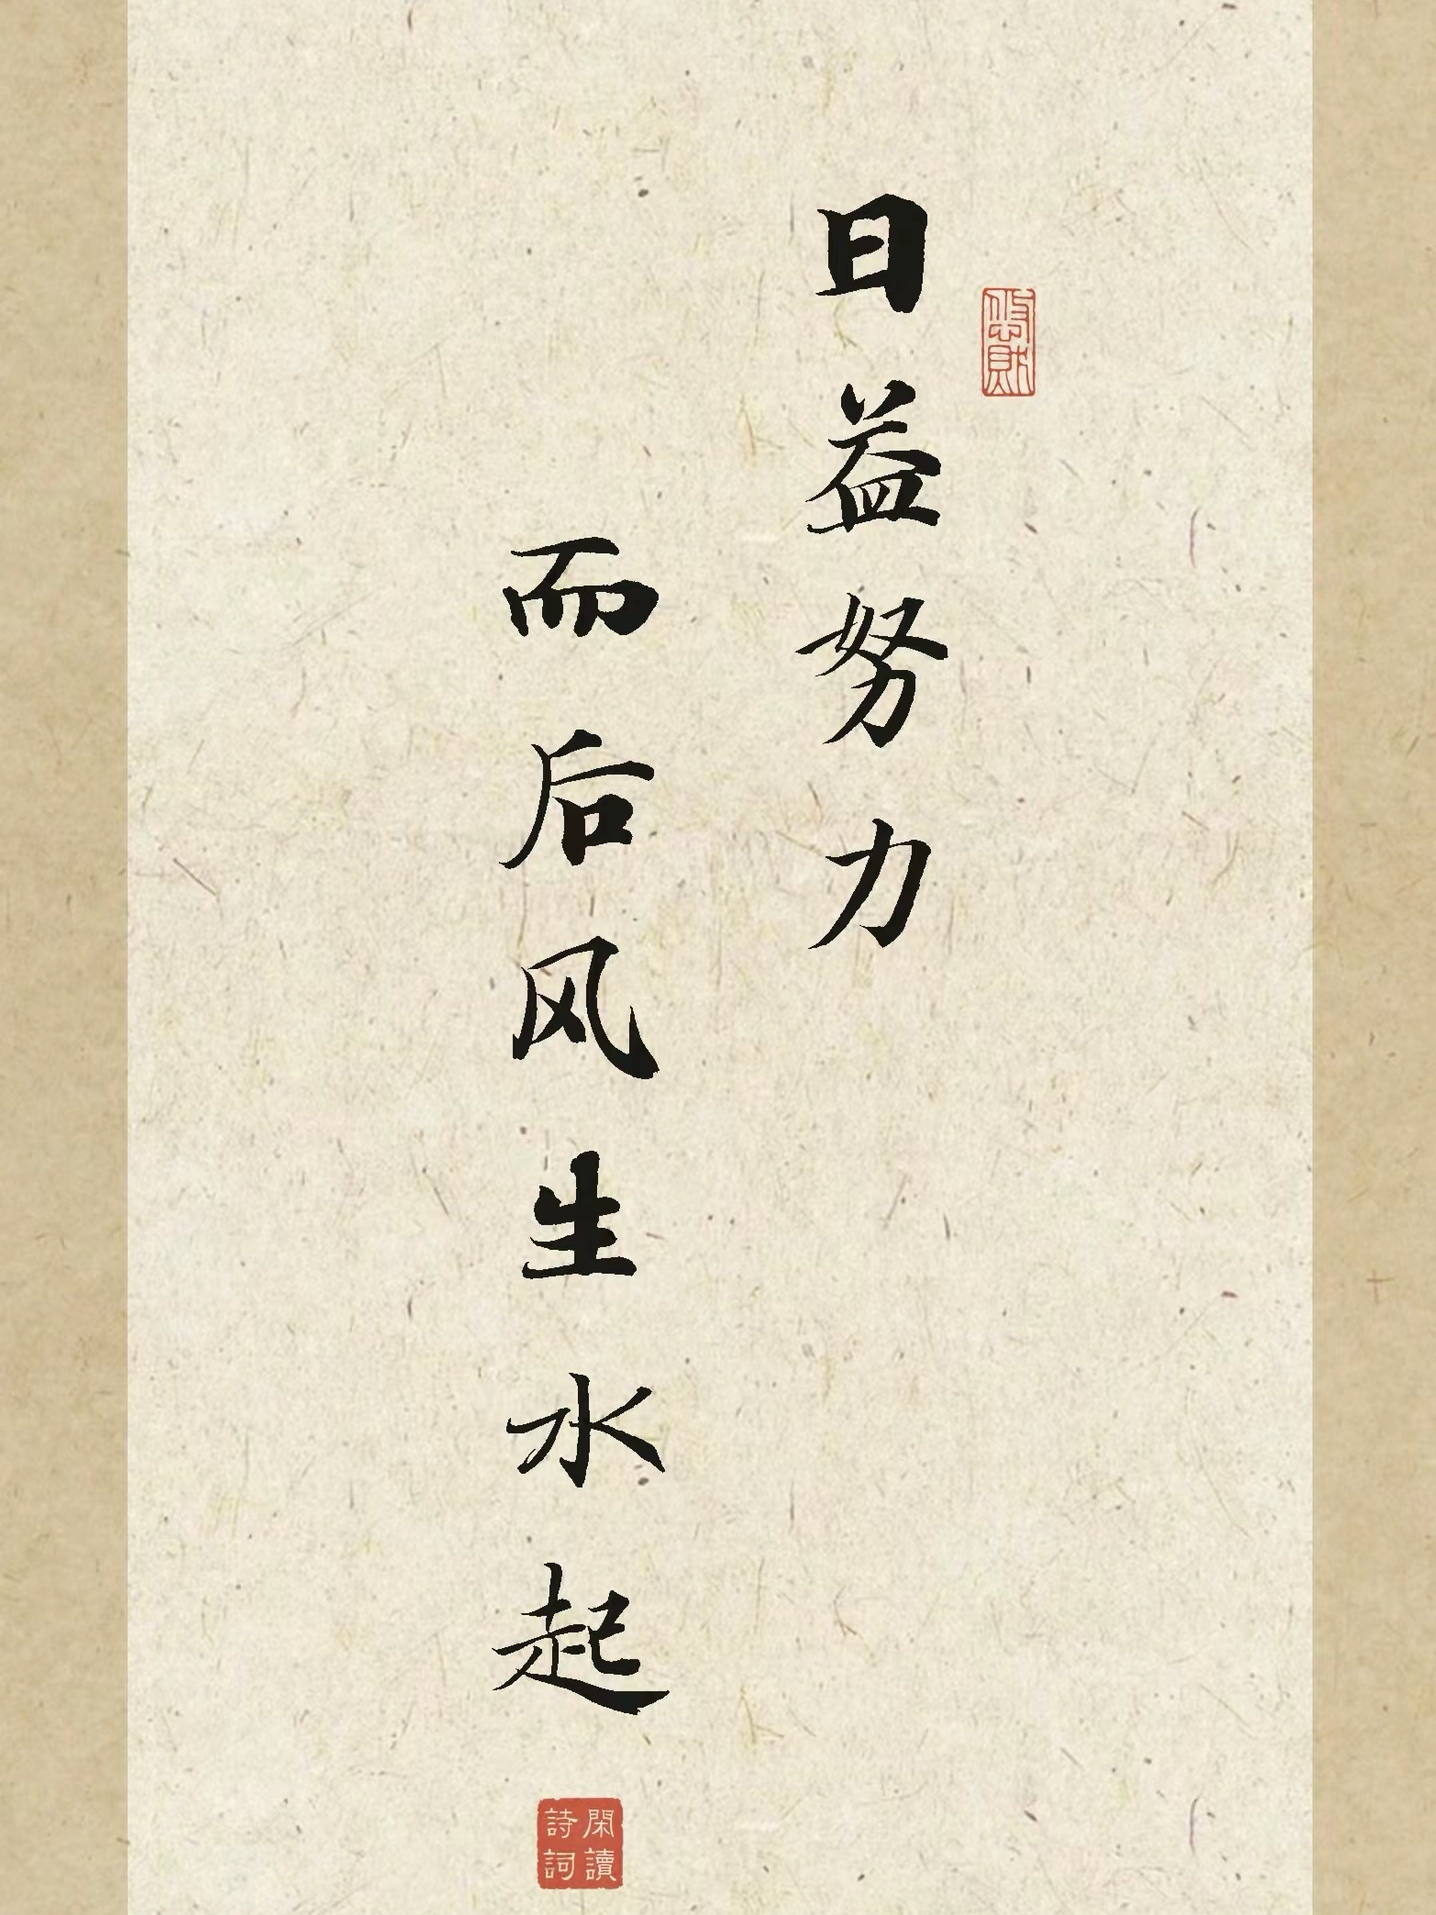 日益努力
而后风生水起
閑讀
詩詞